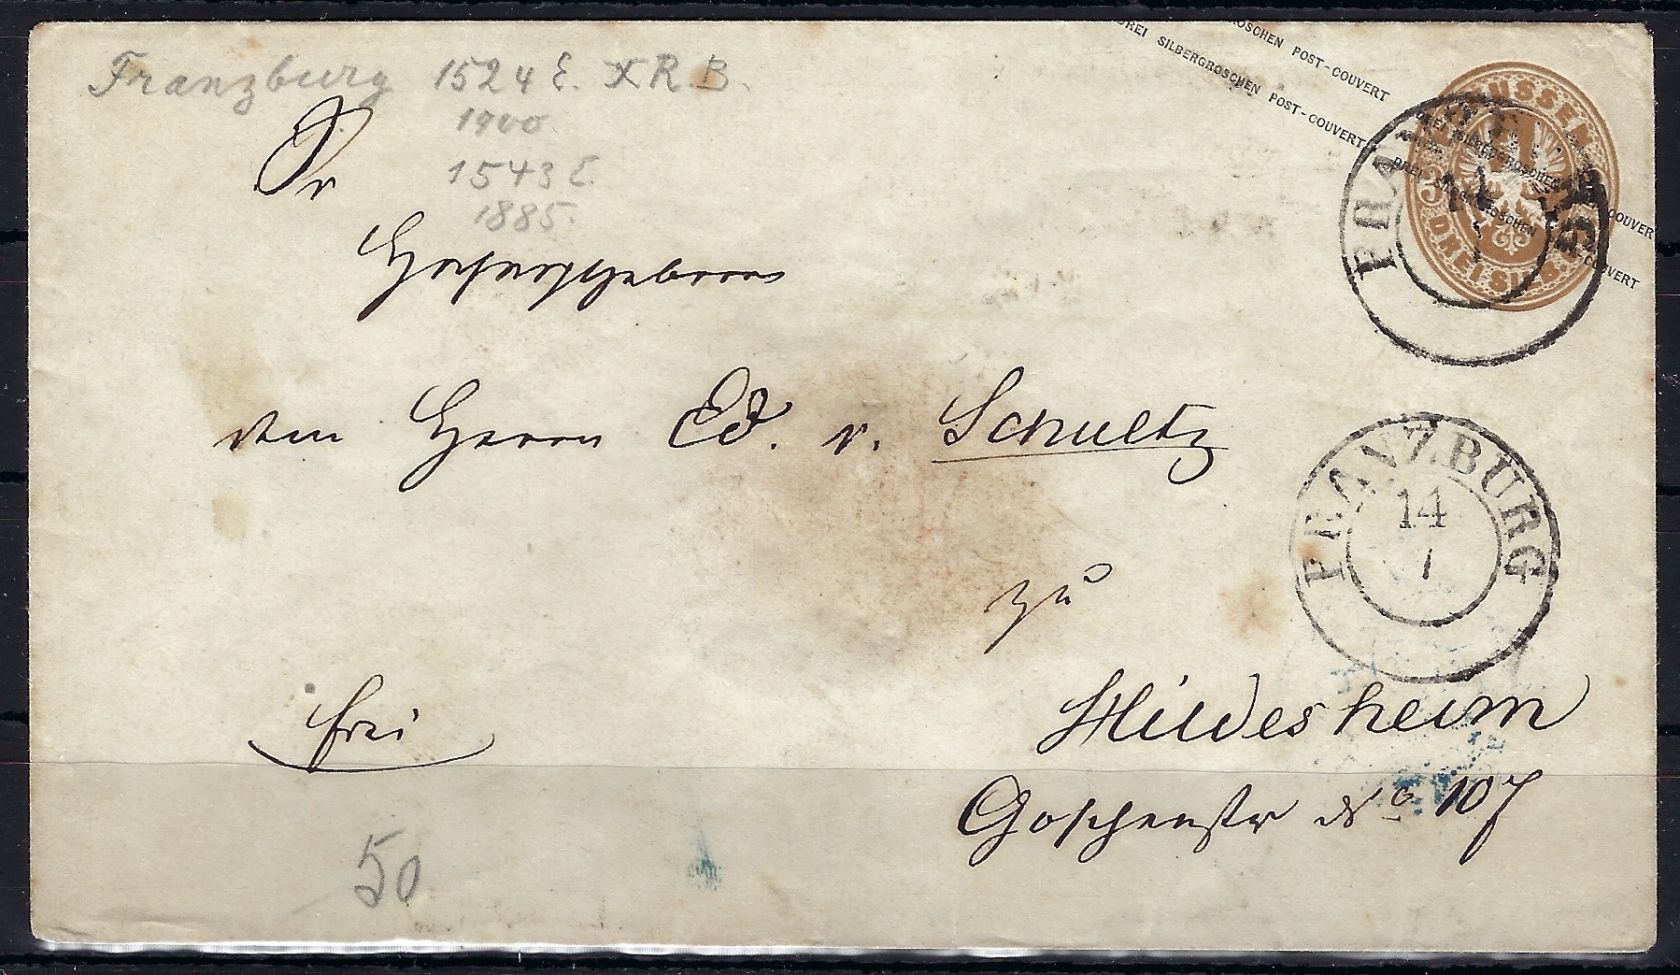 Franzburg 1524 E. X R. B.
1900.
1543 E.
1885.
Sr
Hochwohlgeboren
dem Herrn Ed. v. Schultz
zu
Hildesheim
Goschenstr No 107
frei
50
GROSCHEN POST-COUVERT
DREI SILBERGROSCHEN POST-COUVERT
DREI SILBERGROSCHEN POST-COUVERT
DREI SILBERGROSCHEN POST-COUVERT
PREUSSEN
3 DREI SILB. GR.
FRANZBURG
14
FRANZBURG
14
7